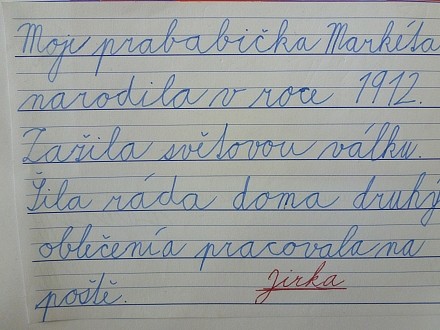 Moje prababička Markéta
narodila v roce 1912.
Zažila světovou válku.
Šila ráda doma druhý
oblečenía pracovala na
poště.
Jirka